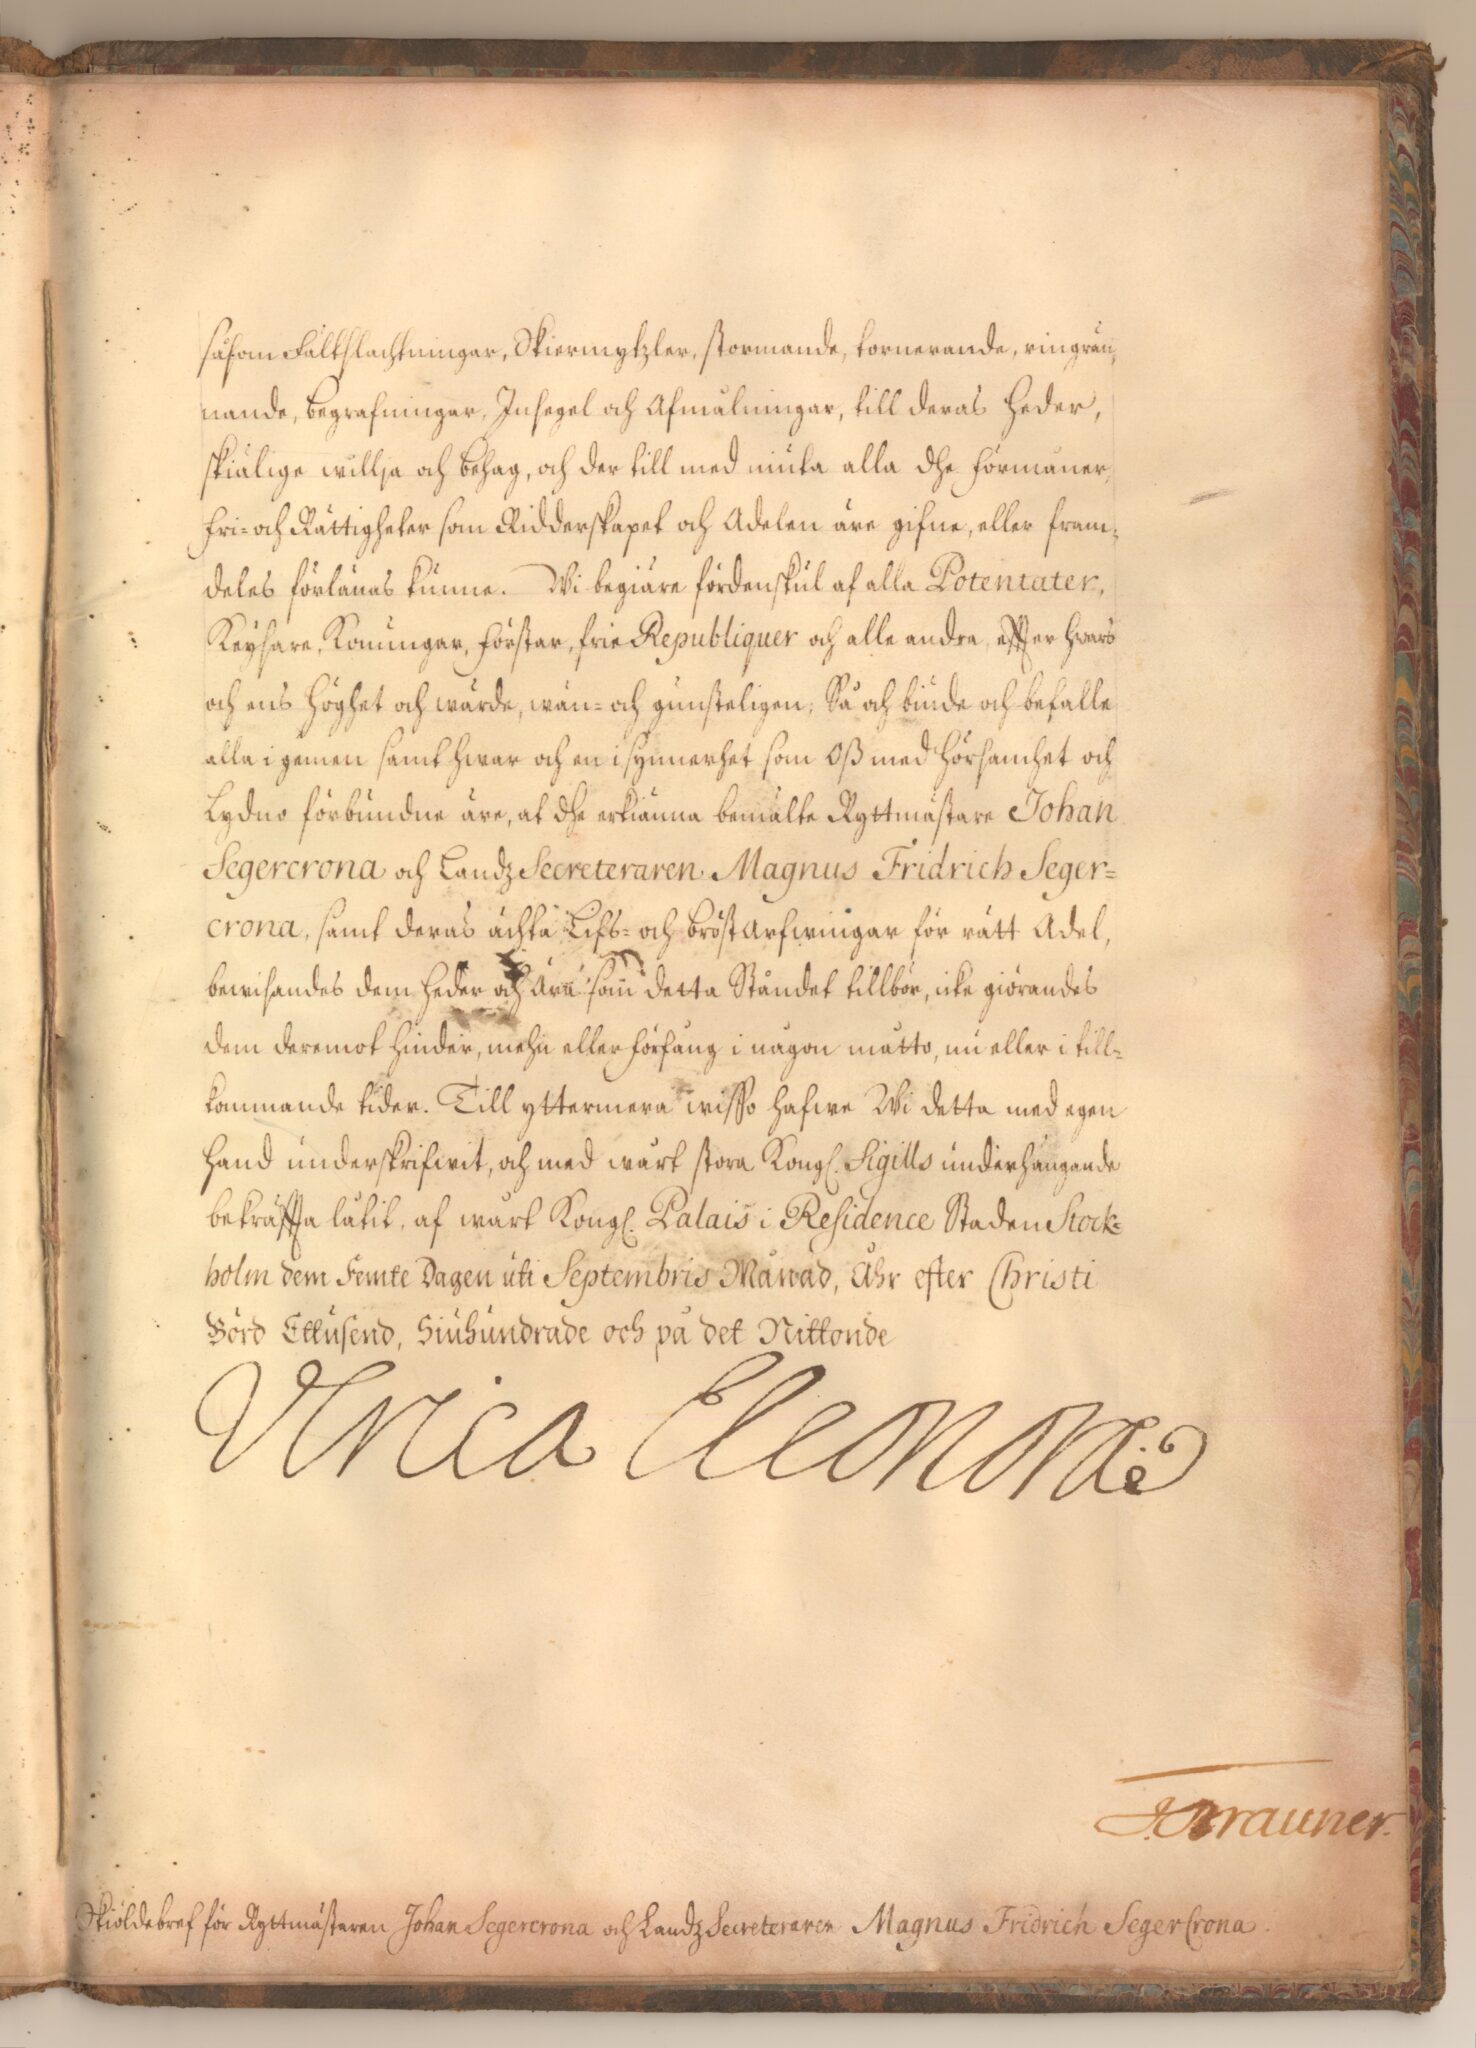 såsom Fältslachtningar, Skiermytzler, stormande, tornerande, ringrän-
nande, begrafningar, Insegel och Afmålningar, till deras heder,
skiälige willja och behag, och der till med niuta alla dhe förmåner,
fri- och Rättigheter som Ridderskapet och Adelen äre gifne, eller fram-
deles förlänas kunne. Wi begiäre fördenskul af alla Potentater,
Keysare, Konungar, Förstar, frie Republiquer och alle andra, effter hwars
och ens höghet och wärde, wän- och gunsteligen, Så och biude och befalle
alla i gemen samt hwar och en i synnerhet som Oß med hörsamhet och
Lydno förbundne äre, at dhe erkiänna bemälte Ryttmästare Johan
Segercrona och Landz Secreteraren Magnus Fridrich Seger=
crona, samt deras ächta Lifs- och bröst Arfwingar för rätt Adel,
bewisandes dem heder och ära som detta Ståndet tillbör, icke giörandes
dem deremot hinder, mehn eller förfång i någon måtto, nu eller i till=
kommande tider. Till yttermera wisso hafwe Wi detta med egen
hand underskrifwit, och med wårt stora Kongl. Sigills underhängande
bekräffta låtit, af wårt Kongl. Palais i Residence Staden Stock=
holm dem Femte Dagen uti Septembris Månad, Åhr efter Christi
Börd Ettusend, Siuhundrade och på det Nittonde
Ulrica Eleonora
Skiöldebref för Ryttmästaren Johan Segercrona och Landz Secreteraren Magnus Fridrich SegerCrona.